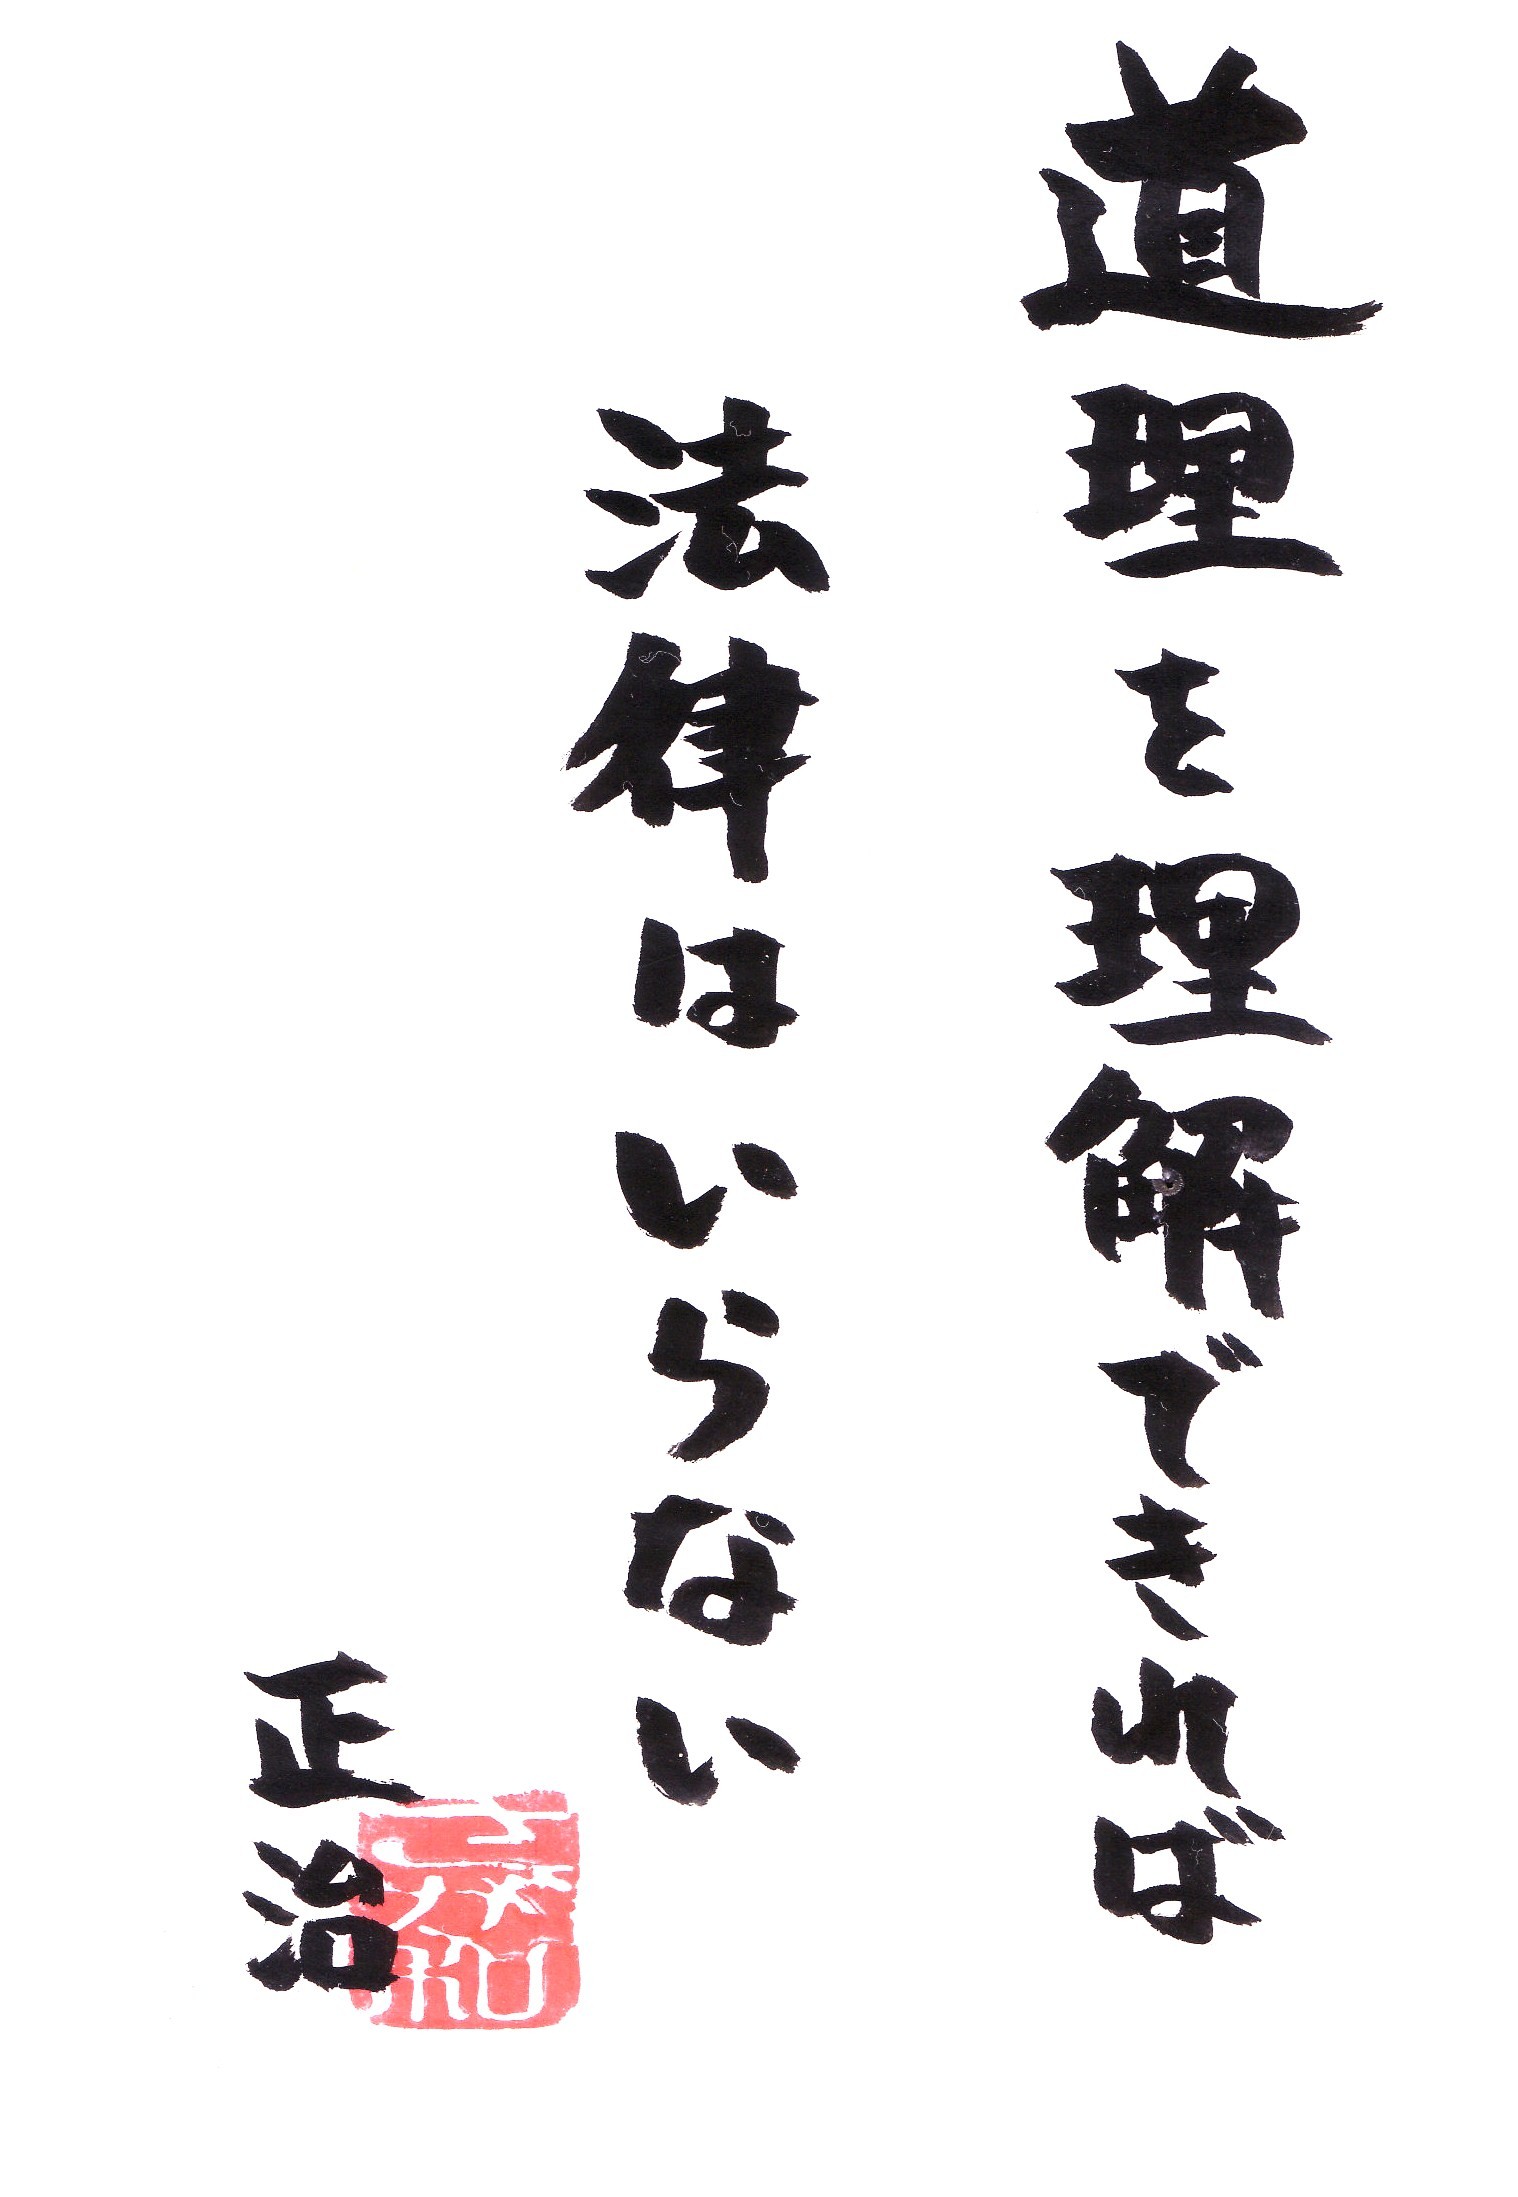 道理を理解できれば
法律はいらない
正治